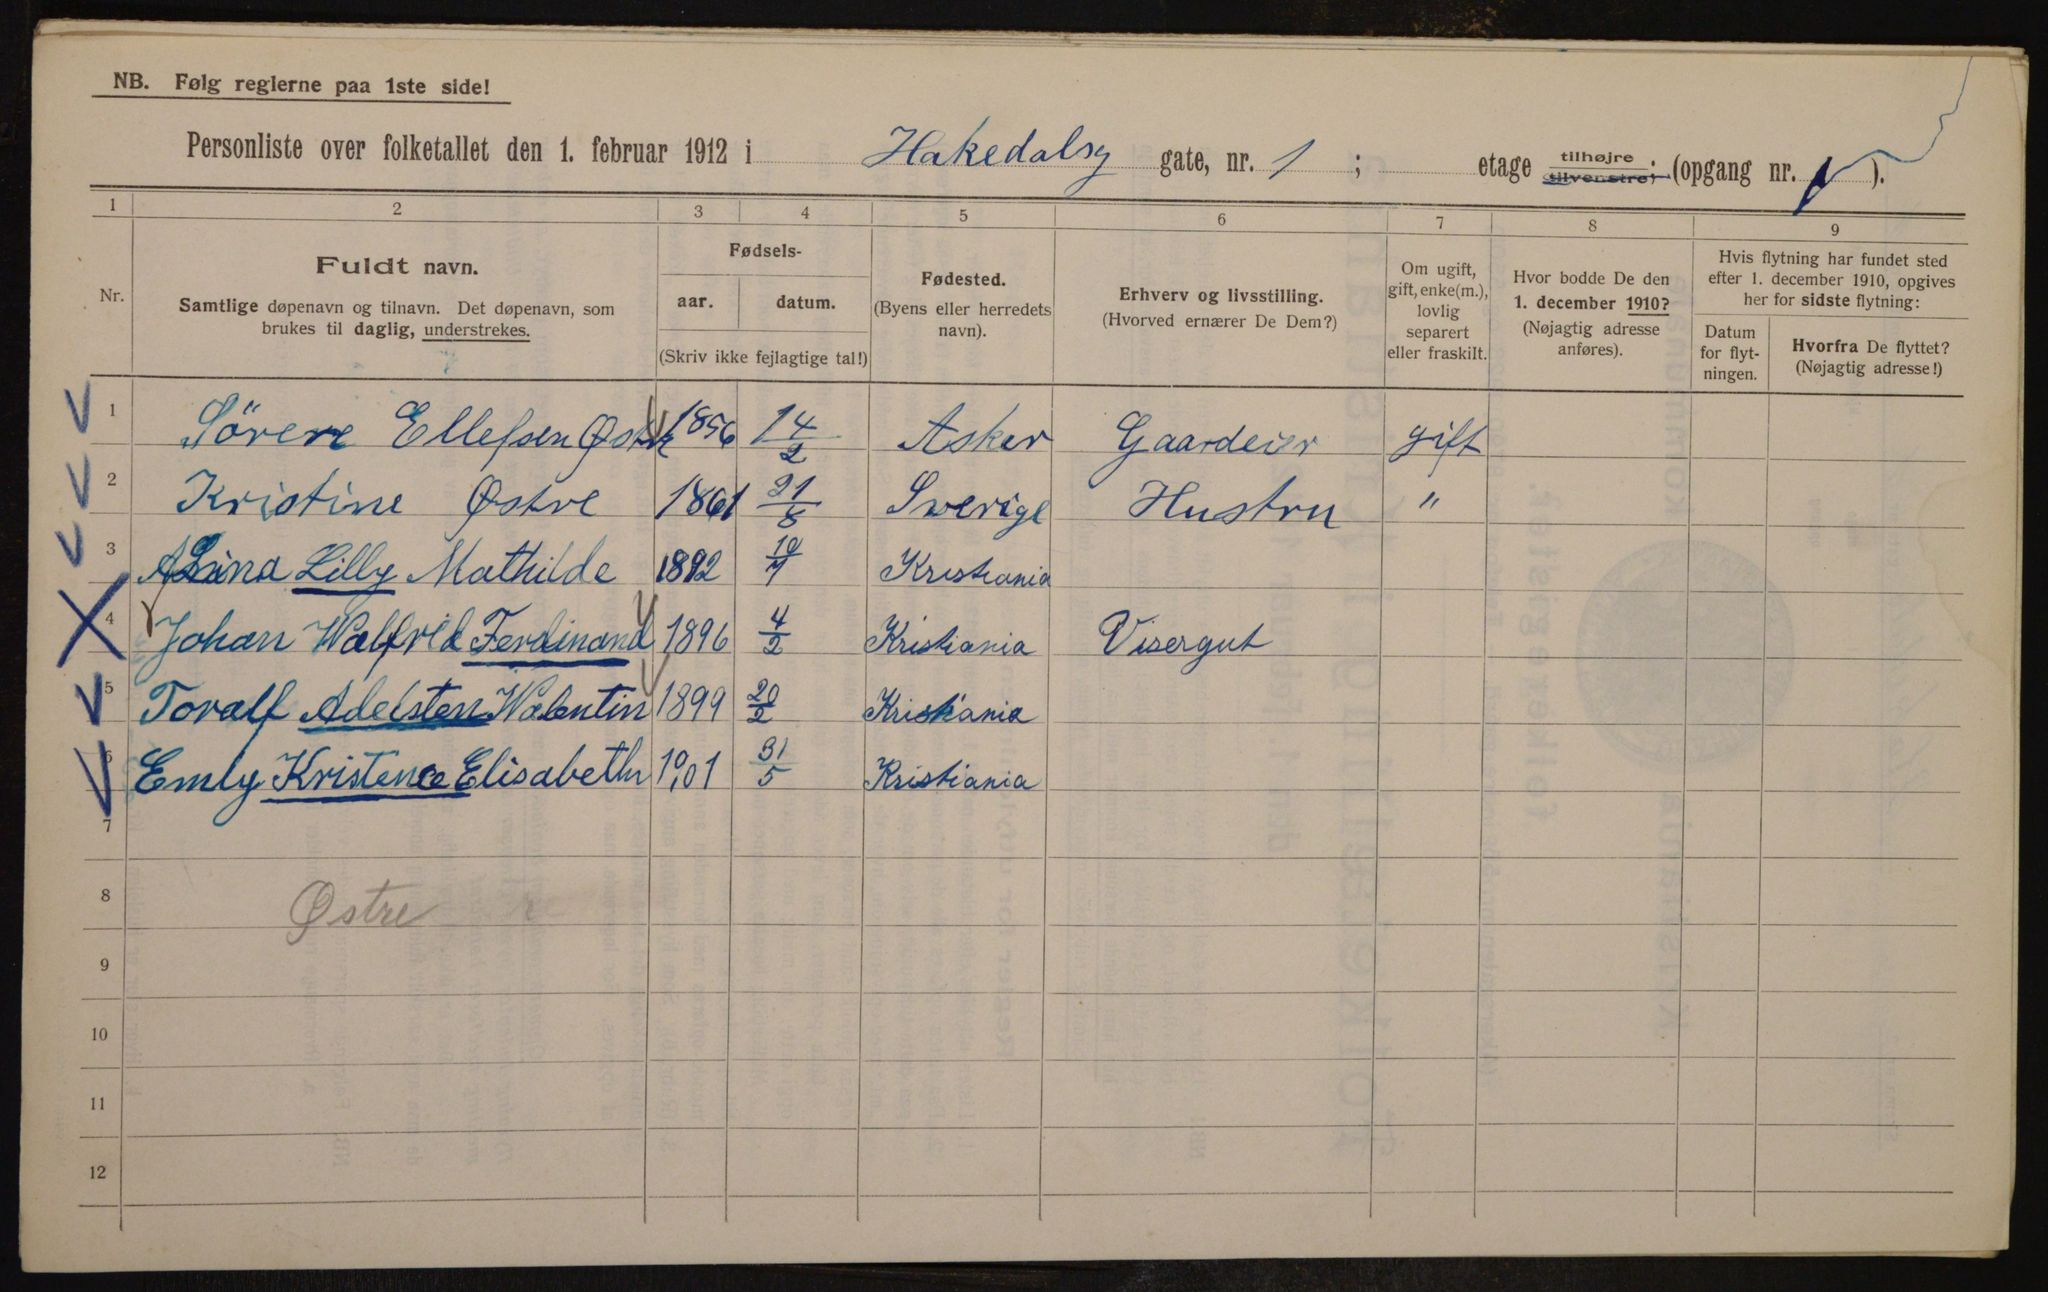 NB. Følg reglerne paa 1ste side!
Personliste over folketallet den 1. februar 1912 i Hakedalsg gate, nr. 1 ; etage tilhøjre tilvenstre; (opgang nr. ).
1 2 3 4 5 6 7 8 9
Nr.
Fuldt navn.
Samtlige døpenavn og tilnavn. Det døpenavn, som
brukes til daglig, understrekes.
Fødsels-
aar. datum.
(Skriv ikke fejlagtige tal!)
Fødested.
(Byens eller herredets
navn).
Erhverv og livsstilling.
(Hvorved ernærer De Dem?)
Om ugift,
gift, enke(m.),
lovlig
separert
eller fraskilt.
Hvor bodde De den
1. december 1910?
(Nøjagtig adresse
anføres).
Hvis flytning har fundet sted
efter 1. december 1910, opgives
her for sidste flytning:
Datum
for flyt-
ningen.
Hvorfra De flyttet?
(Nøjagtig adresse!)
1 Sören Ellefsen Østre 1856 14/2 Asker Gaardeier gift
2 Kristine Østre 1861 21/8 Swerige Hustru "
3 Lilly Mathilde 1892 Kristiania
4 Johan Walfrid Ferdinand 1896 4/2 Kristiania Visergut
5 Toralf Adelsten Walentin 1899 20/2 Kristiania
6 Emly Kristence Elisabeth 1901 31/5 Kristiania
7
8 Østre
9
10
11
12